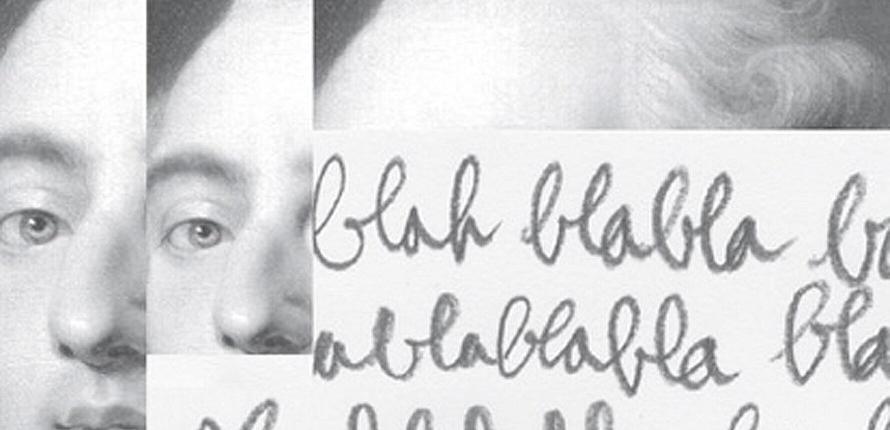 blah blabla
ablablabla bla